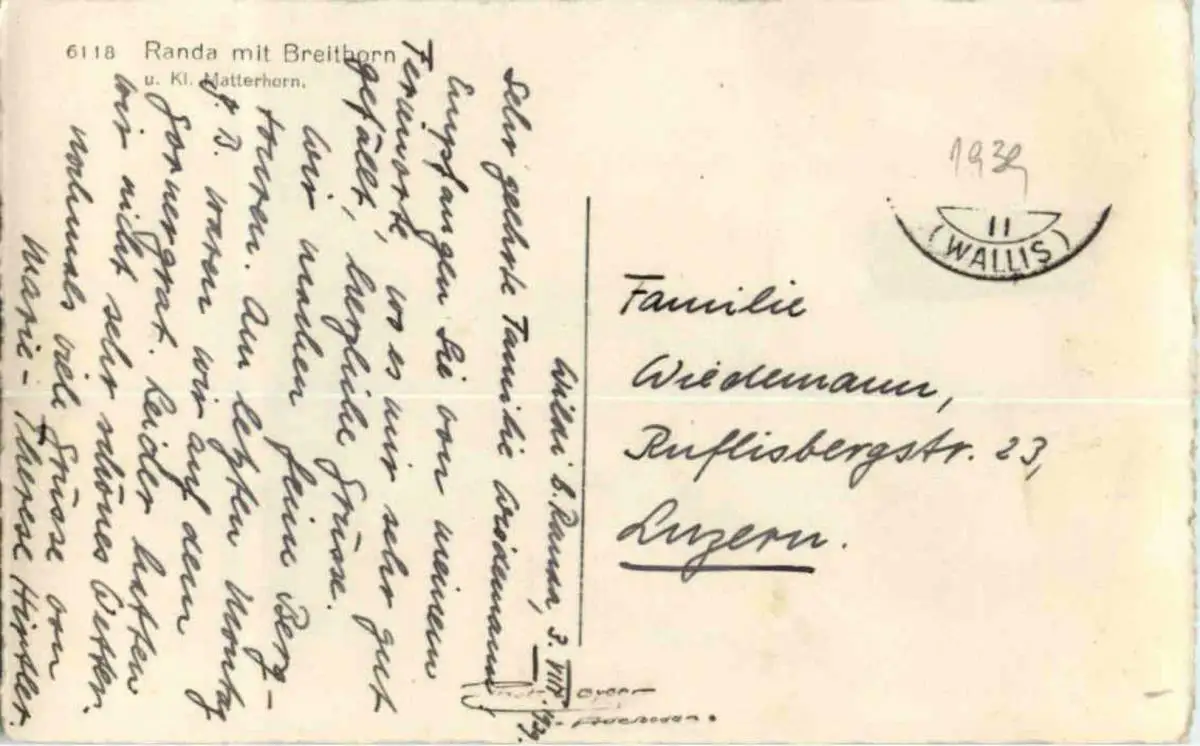 6118 Randa mit Breithorn
u. Kl. Matterhorn.
Wildi b. Randa, 3. VIII. 39.
Sehr geehrte Familie Wiedemann
Empfangen Sie von meinem
Ferienort, wo es mir sehr gut
gefällt, herzliche Grüsse.
Wir machen feine Berg-
touren. Am letzten Montag
z. B. waren wir auf dem
Gornergrat. Leider hatten
wir nicht sehr schönes Wetter.
Nochmals viele Grüsse von
Marie-Therese Hipfler.
1939
11
(WALLIS)
Familie
Wiedemann,
Ruflisbergstr. 23,
Luzern.